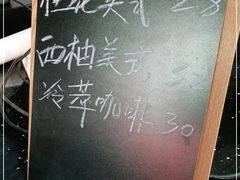 桂花美式 28
西柚美式
冷萃咖啡 30